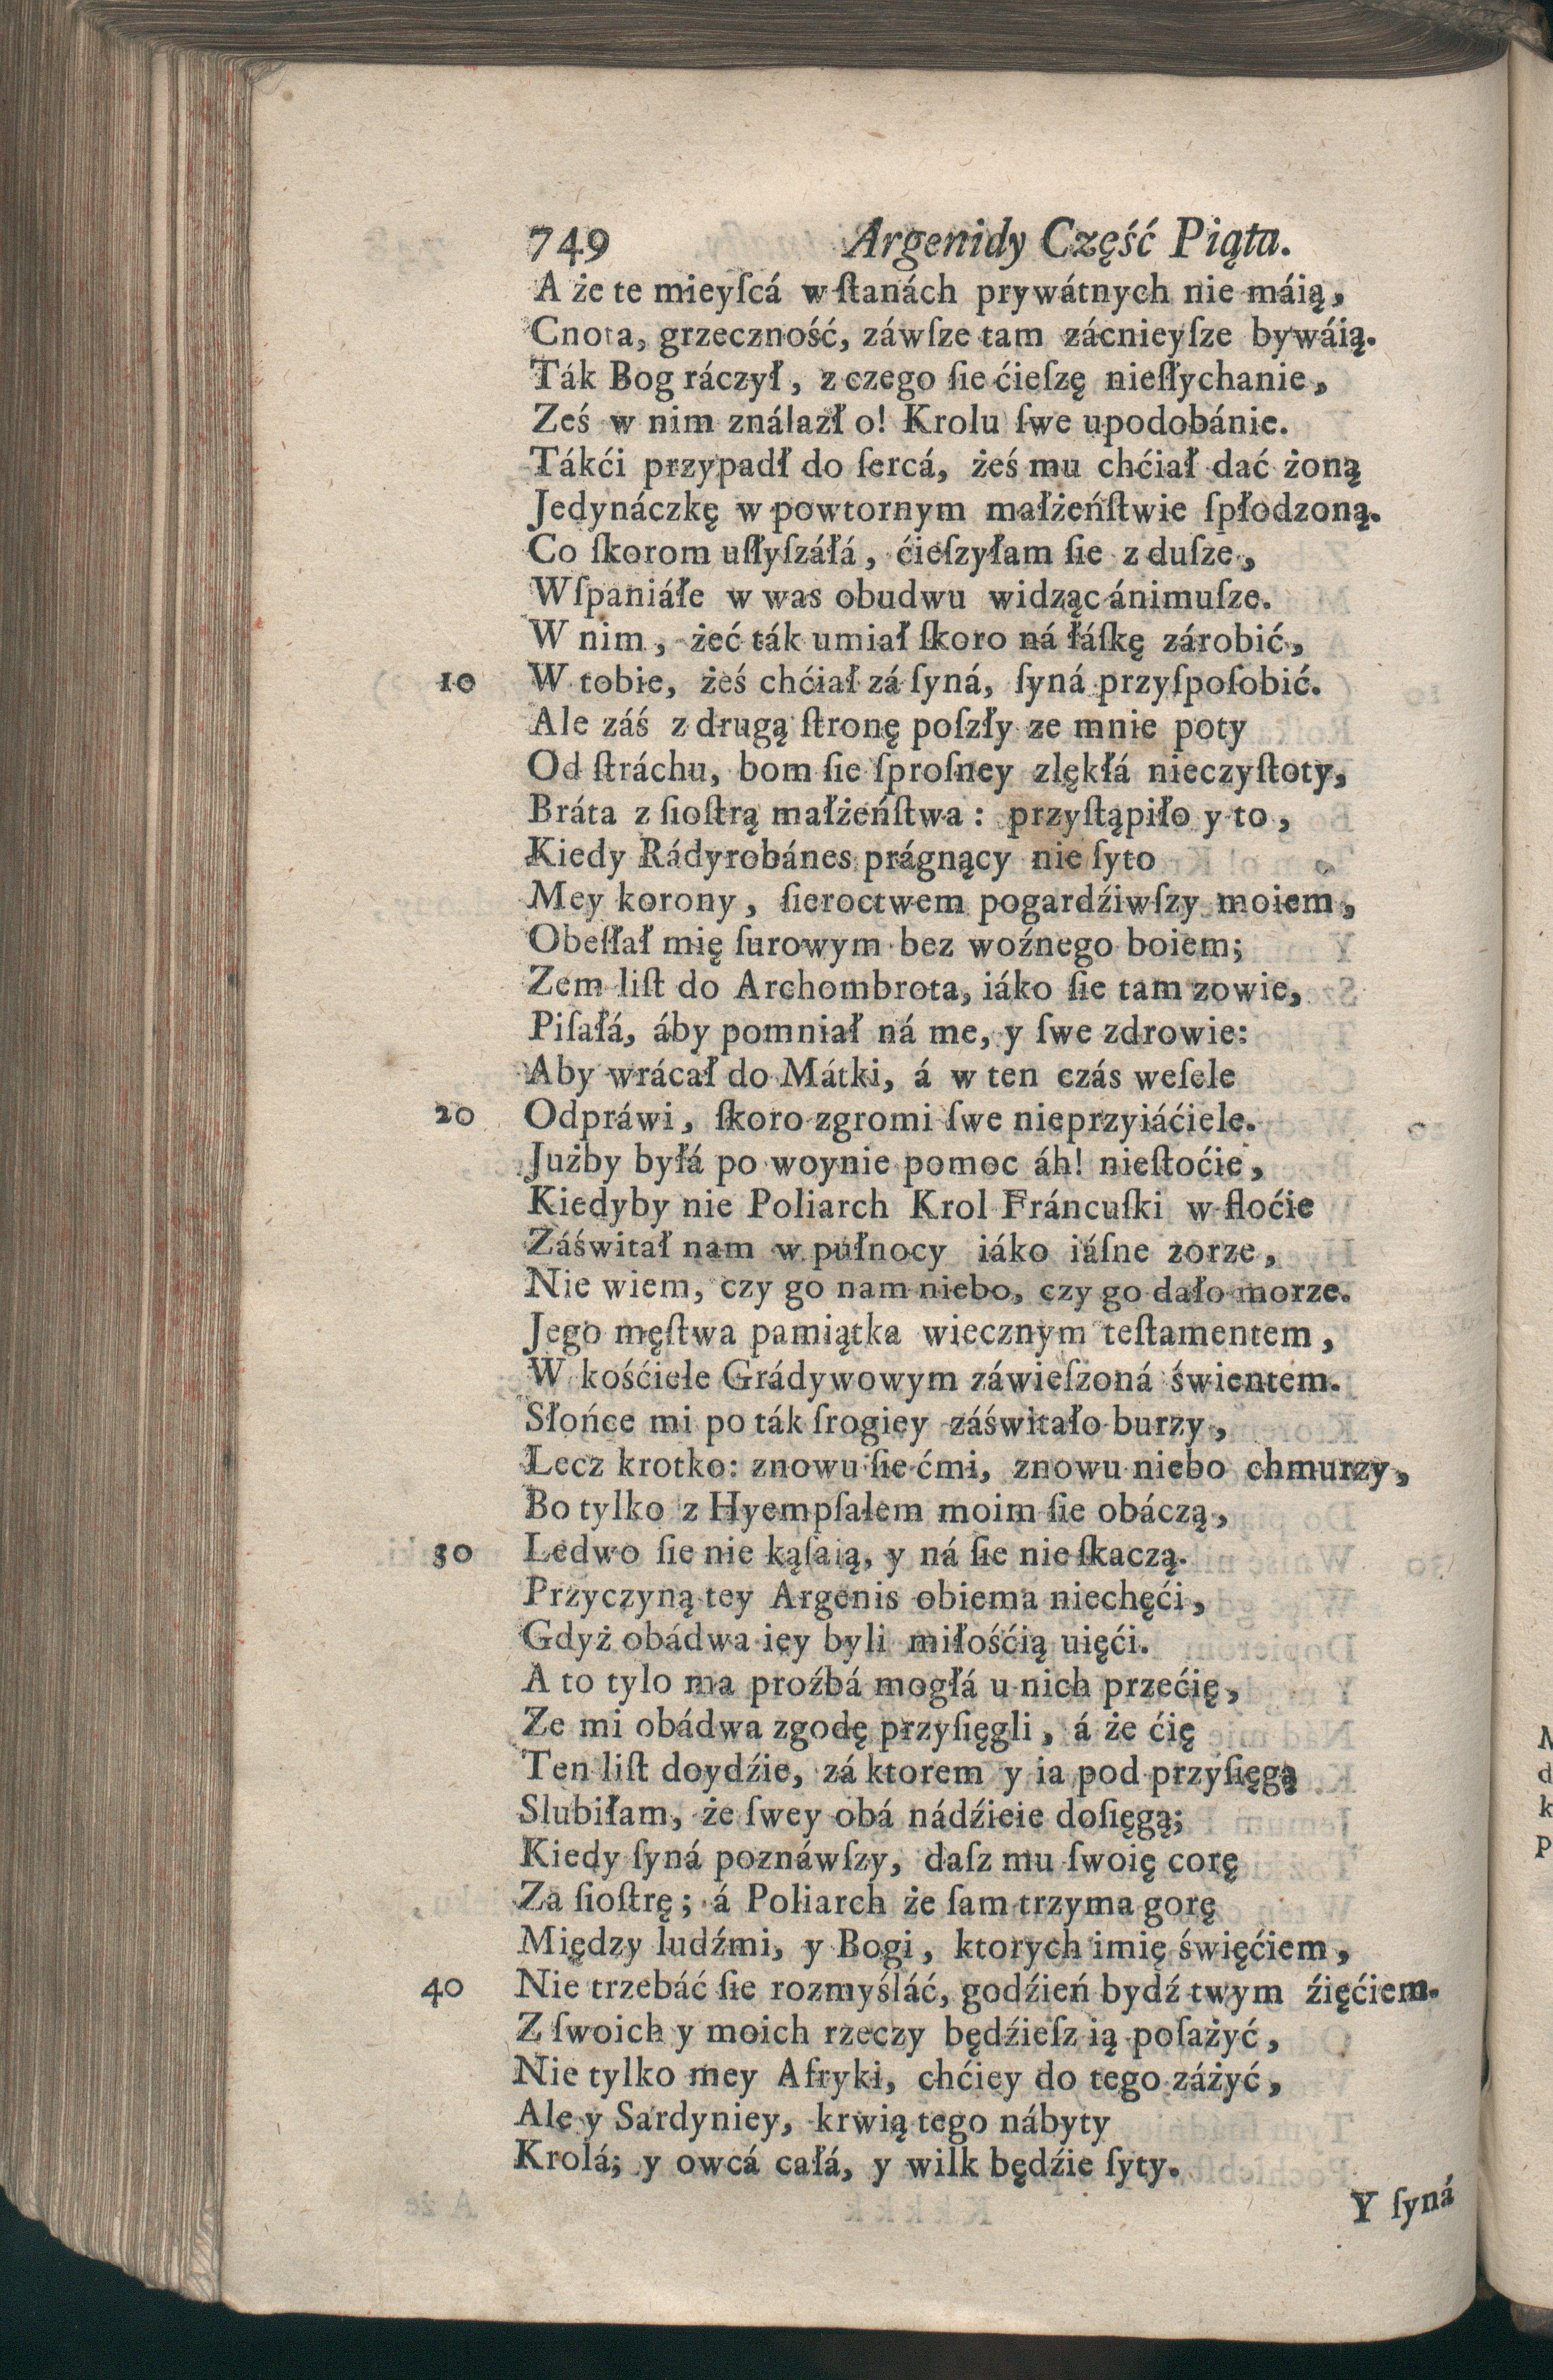 749 Argenidy Część Piąta.
A że te mieyſcá w ſtanách prywátnych nie máią,
Cnota, grzeczność, záwſze tam zácnieyſze bywáią.
Ták Bog ráczył, z czego ſie ćieſzę nieſłychanie,
Ześ w nim ználazł o! Krolu ſwe upodobánie.
Tákći przypadł do ſercá, żeś mu chćiał dać żoną
Jedynáczkę w powtornym małżeńſtwie ſpłodzoną.
Co ſkorom uſłyſzáłá, ćieſzyłam ſie z duſze,
Wſpaniáłe w was obudwu widząc ánimuſze.
W nim, żeć ták umiał ſkoro ná łáſkę zárobić,
10 W tobie, żeś chćiał zá ſyná, ſyná przyſpoſobić.
Ale záś z drugą ſtronę poſzły ze mnie poty
Od ſtráchu, bom ſie ſproſney zlękłá nieczyſtoty,
Bráta z ſioſtrą małżeńſtwa: przyſtąpiło y to,
Kiedy Rádyrobánes prágnący nie ſyto
Mey korony, ſieroctwem pogardźiwſzy moiem,
Obeſłał mię ſurowym bez woźnego boiem;
Zem liſt do Archombrota, iáko ſie tam zowie,
Piſałá, áby pomniał ná me, y ſwe zdrowie:
Aby wrácał do Mátki, á w ten czás weſele
20 Odpráwi, ſkoro zgromi ſwe nieprzyiáćiele.
Jużby byłá po woynie pomoc áh! nieſtoćie,
Kiedyby nie Poliarch Krol Fráncuſki w floćie
Záświtał nam w pułnocy iáko iáſne zorze,
Nie wiem, czy go nam niebo, czy go dało morze.
Jego męſtwa pamiątka wiecznym teſtamentem,
W kośćiele Grádywowym záwieſzoná świentem.
Słońce mi po ták ſrogiey záświtało burzy,
Lecz krotko: znowu ſie ćmi, znowu niebo chmurzy,
Bo tylko z Hyempſalem moim ſie obáczą,
30 Ledwo ſie nie kąſaią, y ná ſie nie ſkaczą.
Przyczyną tey Argenis obiema niechęći,
Gdyż obádwa iey byli miłośćią uięći.
A to tylo ma proźbá mogłá u nich przećię,
Ze mi obádwa zgodę przyſięgli, á że ćię
Ten liſt doydźie, zá ktorem y ia pod przyſięgą
Slubiłam, że ſwey obá nádźieie doſięgą;
Kiedy ſyná poznáwſzy, daſz mu ſwoię corę
Za ſioſtrę; á Poliarch że ſam trzyma gorę
Między ludźmi, y Bogi, ktorych imię święćiem,
40 Nie trzebáć ſie rozmyśláć, godźień bydź twym źięćiem.
Z ſwoich y moich rzeczy będźieſz ią poſażyć,
Nie tylko mey Afryki, chćiey do tego záżyć,
Ale y Sardyniey, krwią tego nábyty
Krolá; y owcá całá, y wilk będźie ſyty.
Y ſyná